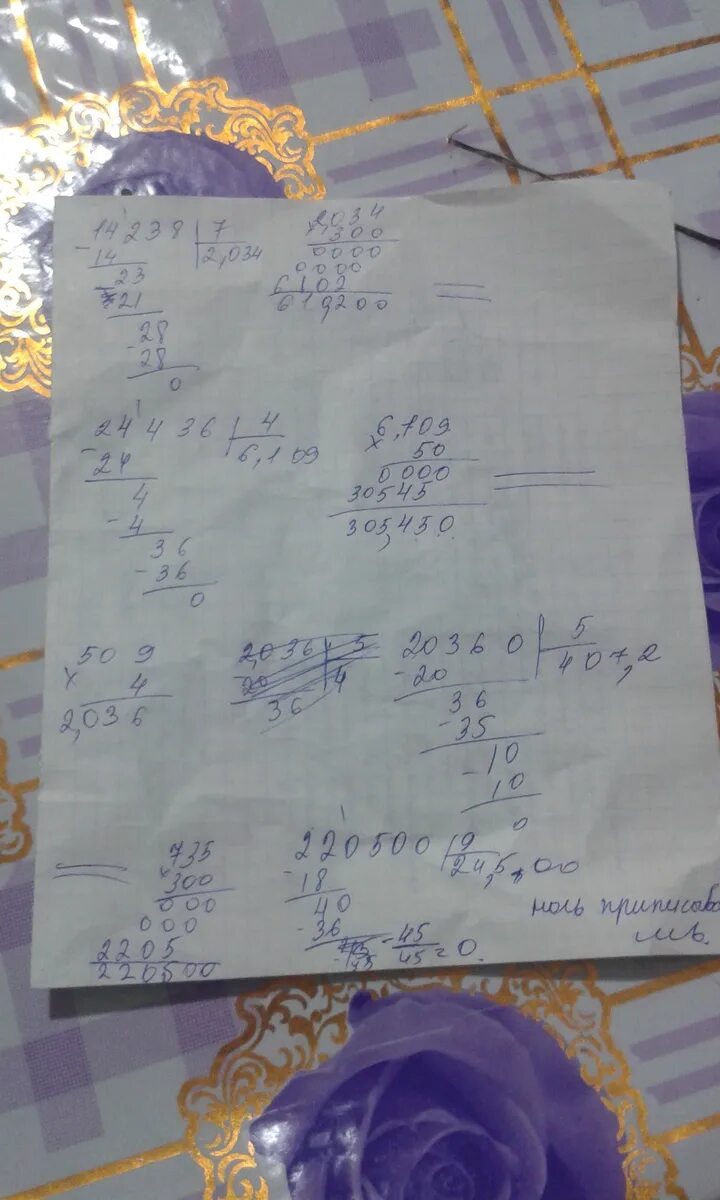 14238 | 7
- 14 2,034
23
- 21
- 28
28
0
2,034
× 300
0000
0000
6102
619200
24436 | 4
- 24 6,109
4
- 4
36
- 36
0
6,109
× 50
0000
30545
305,450
509
× 4
2,036
2,036 | 5
- 20 4
36
20360 | 5
- 20 407,2
36
- 35
- 10
10
0
735
× 300
000
000
2205
220500
220500 | 9
- 18 24,5,00
40
- 36
- 45
45 = 0.
ноль